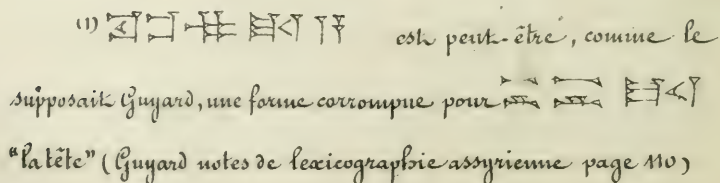 (1) est peut-être, comme le
supposait Guyard, une forme corrompue pour
"la tête" (Guyard notes de lexicographie assyrienne page 110)